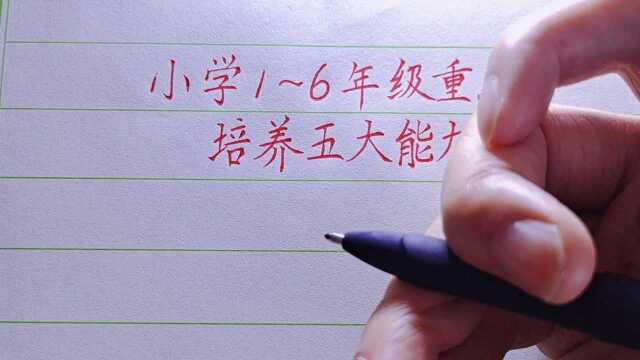 小学1~6年级重
培养五大能